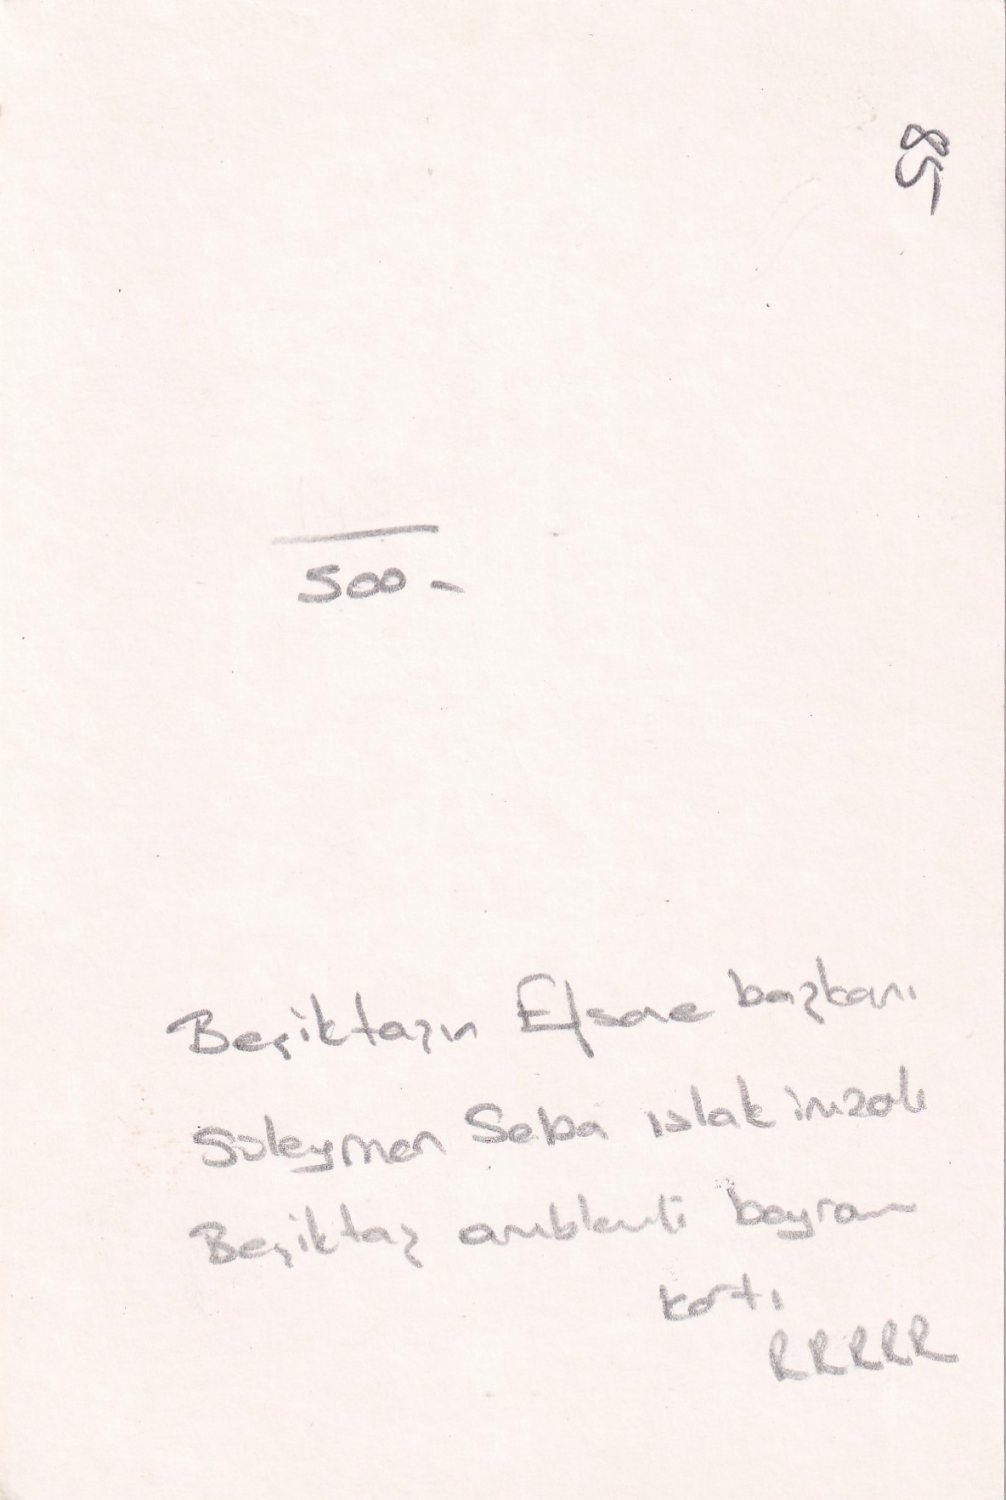 85
500-
Beşiktaşın Efsane başkanı
Süleyman Seba ıslak imzalı
Beşiktaş amblemli bayram
kartı
RRRRR